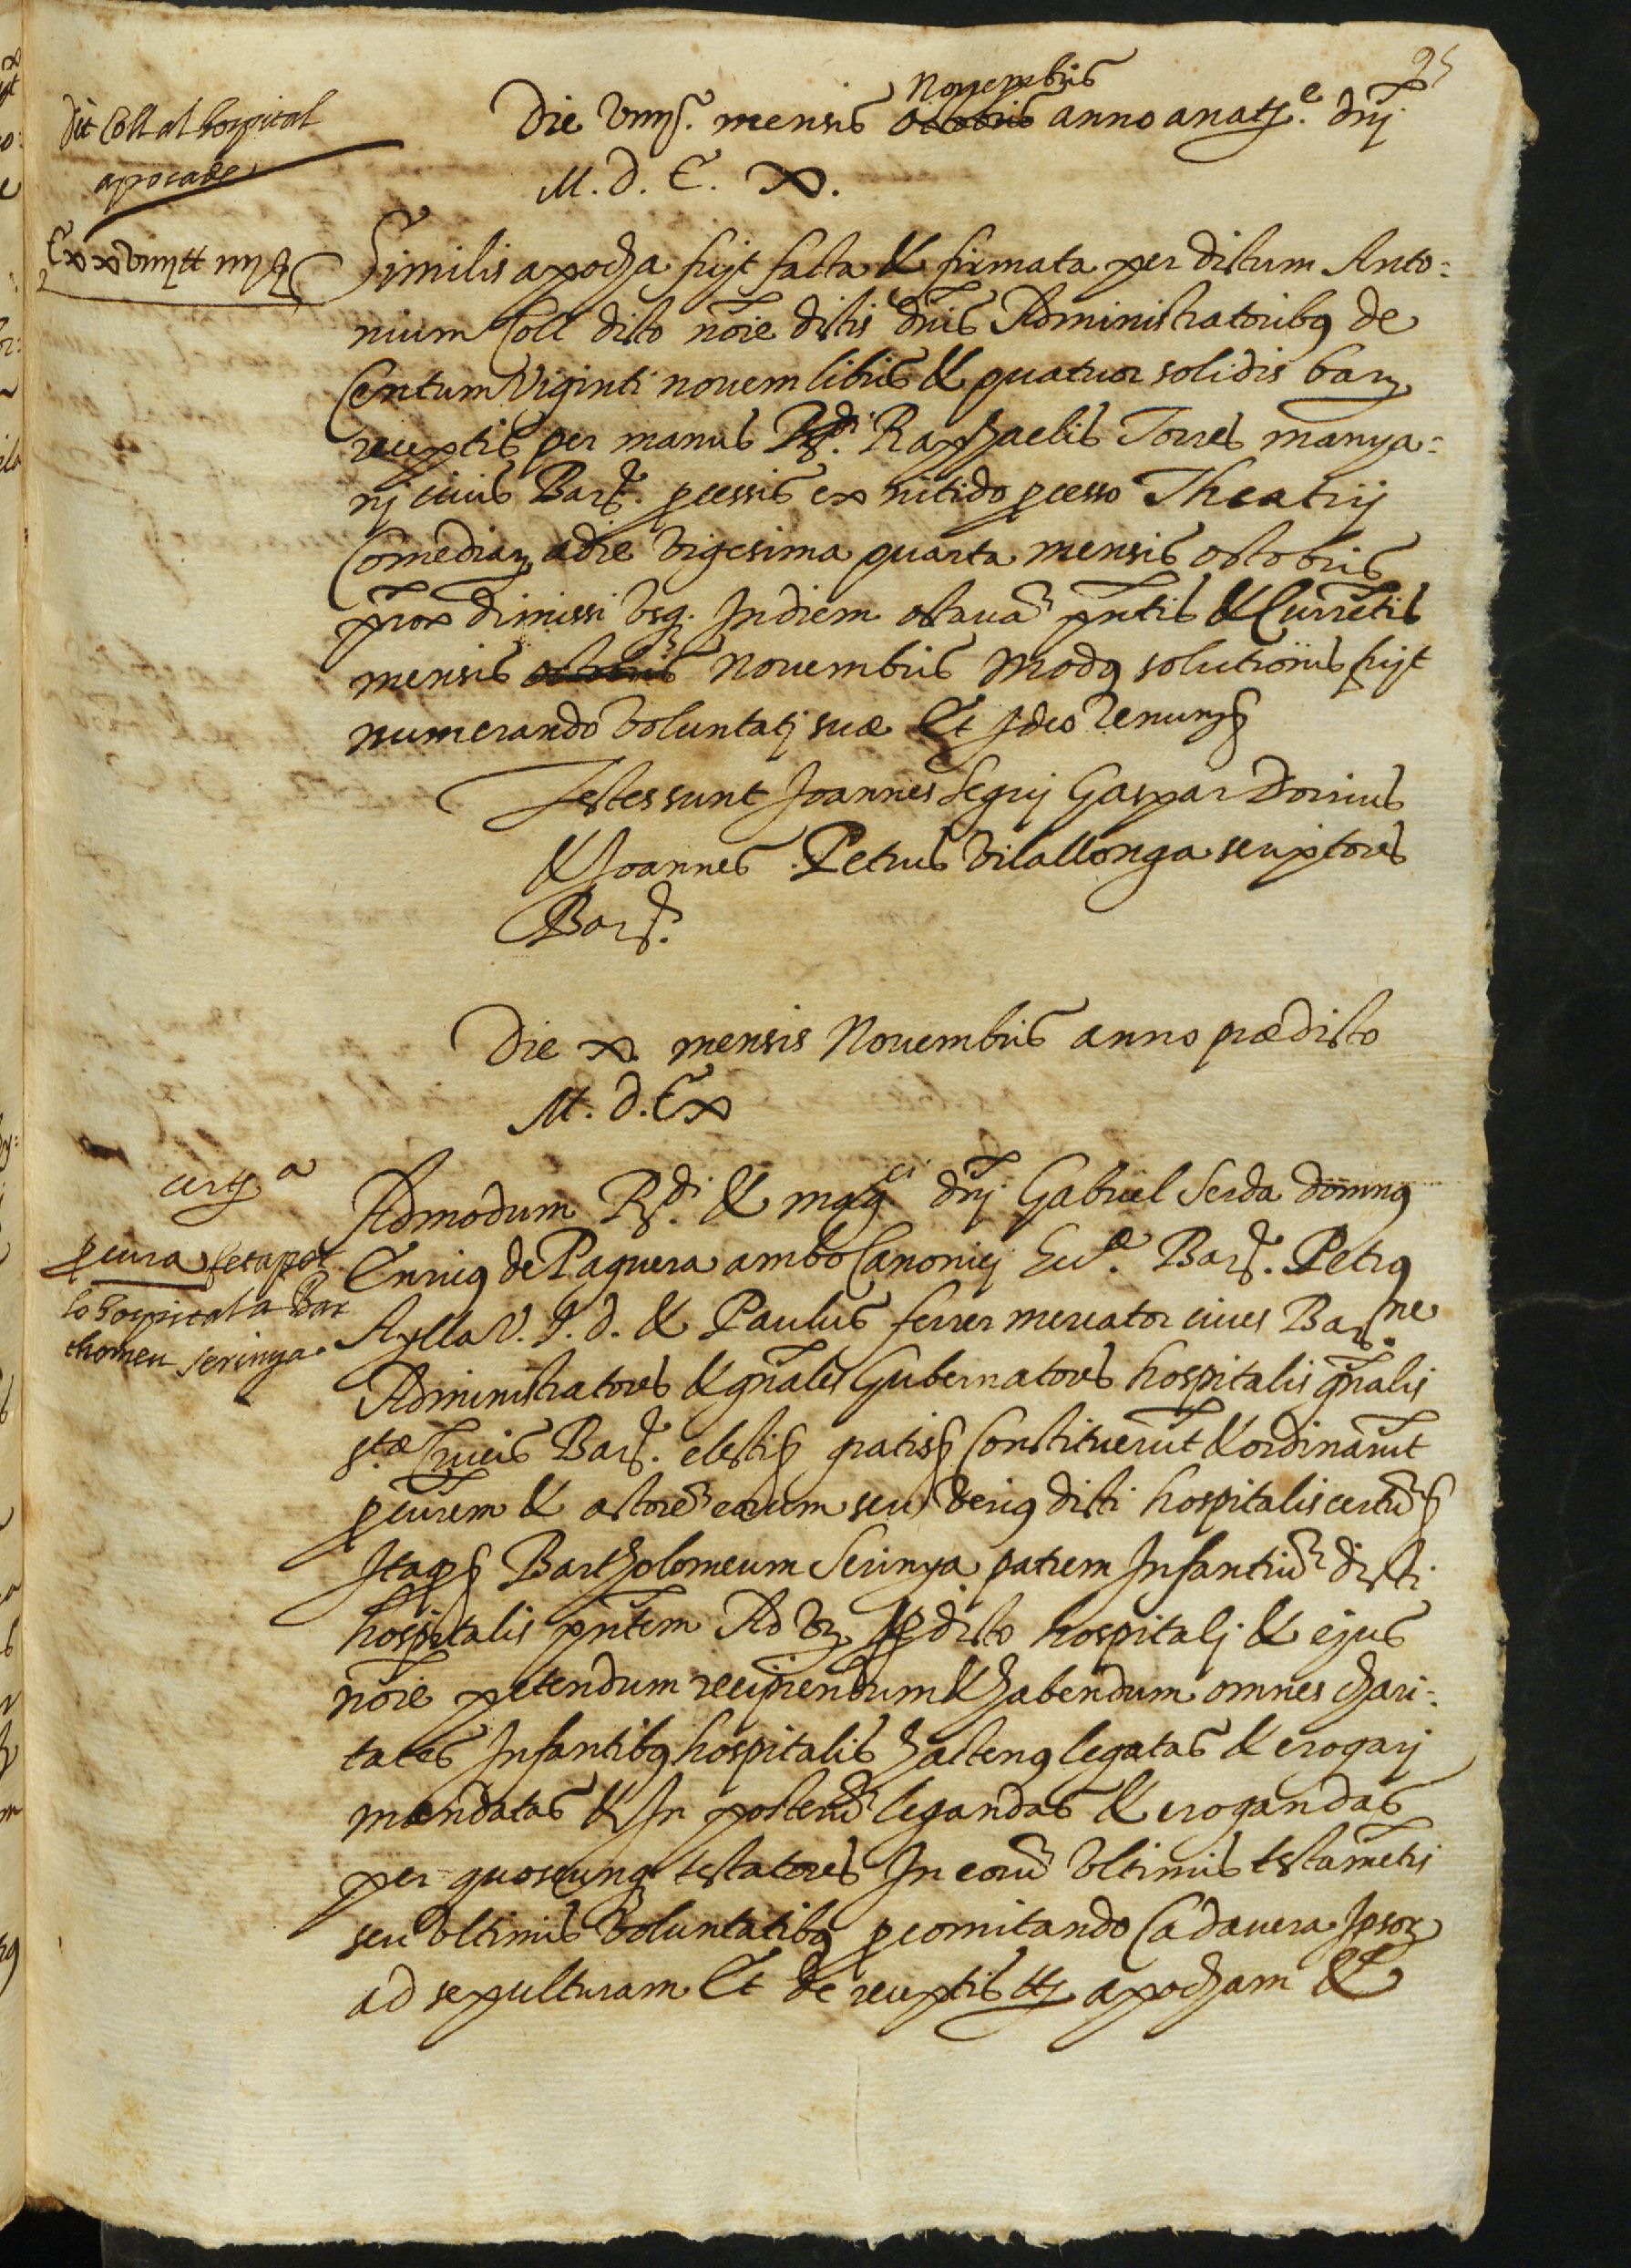 95
Die viiij. mensis octobris Novembris anno a nat.e dnj
M. D. C. X.
dit Coll al hospital
apoca de
CxxviiijLL iiijs
Similis apocha fuyt facta & firmata per dictum Anto:
nium Coll dicto noie dictis dnis Administratoribus de
Centum Viginti novem libris & quatuor solidis bar
receptis per manus Rdi. Raphaelis Torres manya:
nj civis Barc. pcessis ex nitido pcesso Theatrij
Comediar adie vigesima quarta mensis octobris
prox dimissi usq. In diem octava pntis & Curretis
mensis octobris Novembris Modus solutionis fuyt
numerando voluntatj suæ Et Ideo renun
Testes sunt Joannes Seguj Gaspar Dorius
& Joannes Petrus Vilallonga scriptores
Barc.
Die x. mensis Novembris anno prædicto
M. D. Cx
certa
Admodum Rdi. & magci dnj Gabriel Serda domnus
pcura feta pel
lo hospital a Bar
thomeu serinya
Enricus de Paguera ambo Canonicj Ecce. Barc. Petrus
Aylla V. J. D. & Paulus ferrer mercator cives Barne.
Administratores & gnales Gubernatores hospitalis gnalis
Stæ Crucis Barc. electi gratis Constituerut & ordinarut
pcurem & actore eorum seu verius dicti hospitalis certu
Itaq Bartholomeum Serinya patrem Infantiu dicti
hospitalis pntem Ad vz p dicto hospitalj & ejus
noie petendum recipiendum & habendum omnes chari:
tates Infantibus hospitalis hactenus legatas & erogarj
mandatas & In posteru legandas & erogandas
per quoscunq testatores In eoru ultimis testametis
seu ultimis voluntatibus p comitando Cadavera Ipsor
ad sepulturam Et de receptis apocham &